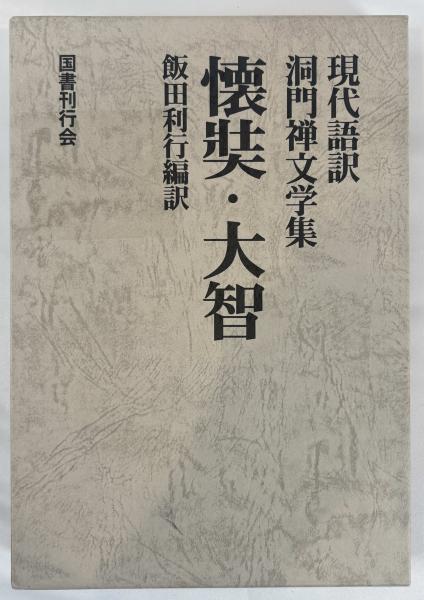 現代語訳
洞門禅文学集
懐奘・大智
飯田利行編訳
国書刊行会